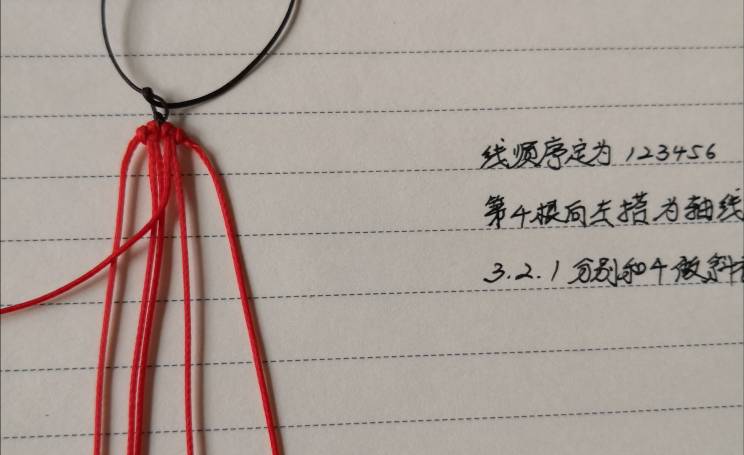 线顺序定为 123456
第4根向左搭为轴线
3.2.1分别和4做斜